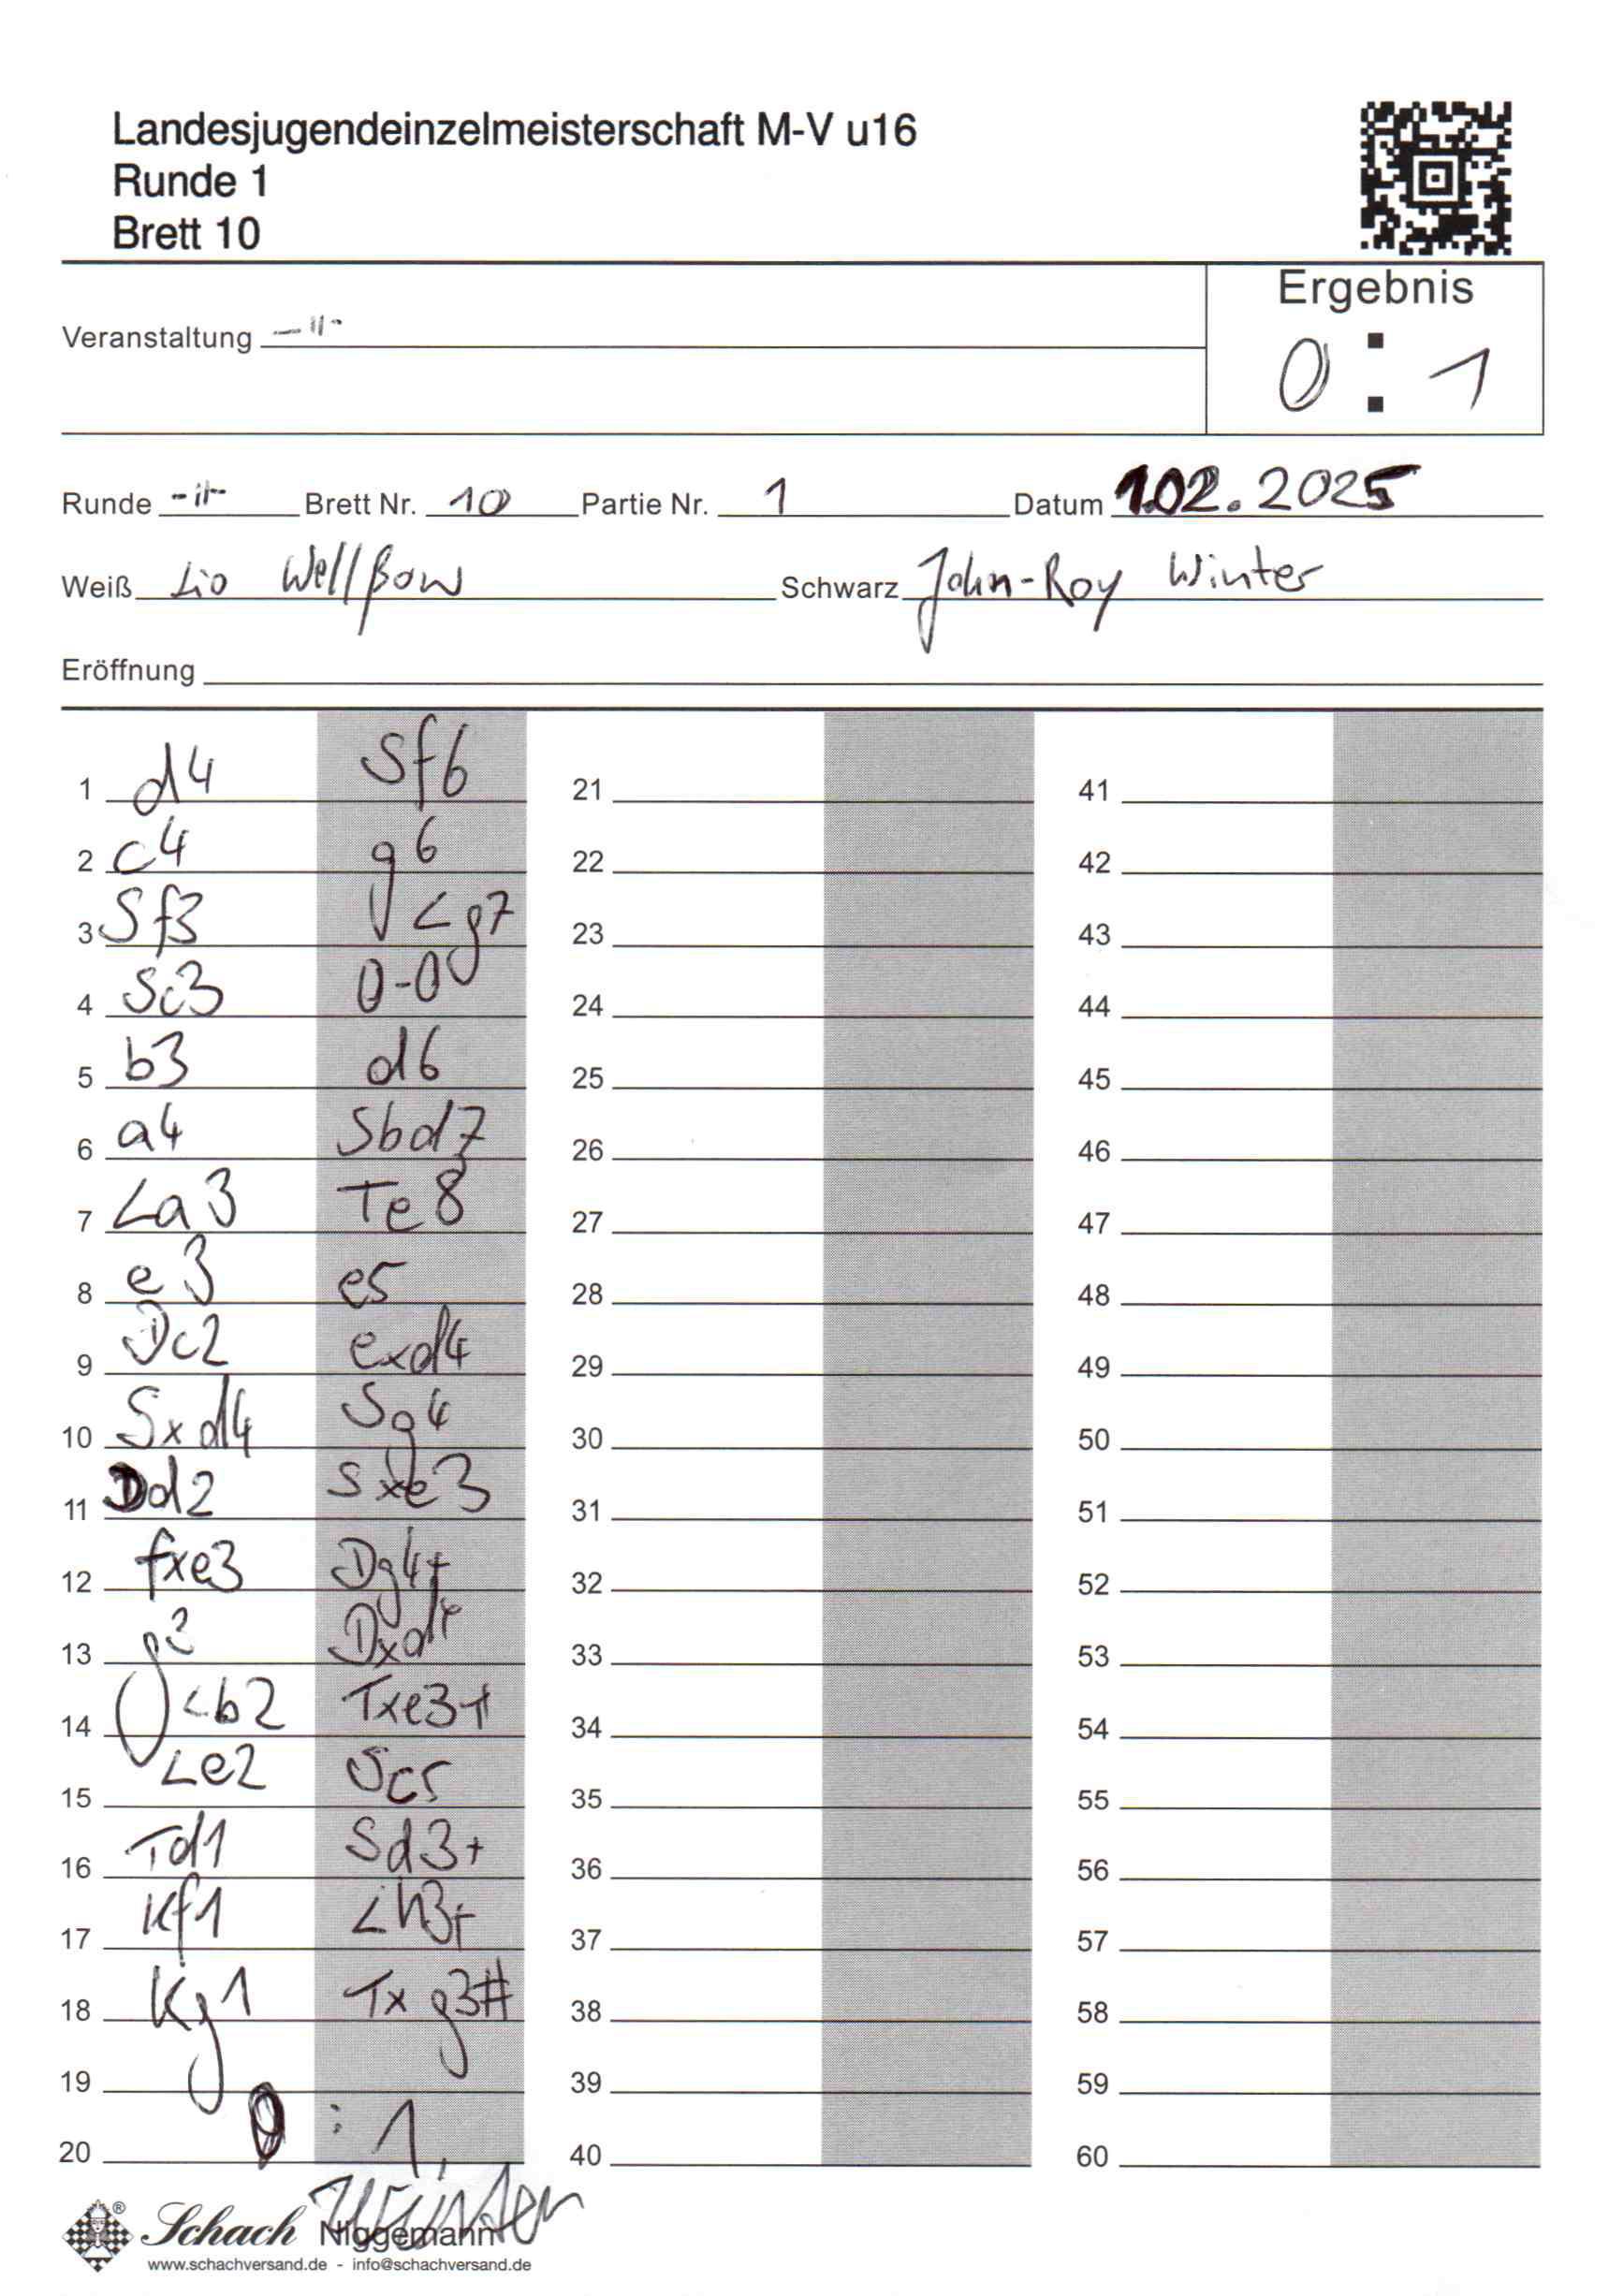 Landesjugendeinzelmeisterschaft M-V u16
Runde 1
Brett 10
Ergebnis
0 : 1
Veranstaltung -"-
Runde -"- Brett Nr. 10 Partie Nr. 1 Datum 1.02.2025
Weiß Lio Wellßow Schwarz John-Roy Winter
Eröffnung
1 d4 Sf6 21 41
2 c4 g6 22 42
3 Sf3 Lg7 23 43
4 Sc3 0-0 24 44
5 b3 d6 25 45
6 a4 Sbd7 26 46
7 La3 Te8 27 47
8 e3 e5 28 48
9 Dc2 exd4 29 49
10 Sxd4 Sg4 30 50
11 Dd2 Sxe3 31 51
12 fxe3 Dg4+ 32 52
13 g3 Dxd4 33 53
14 Lb2 Txe3+ 34 54
15 Le2 Sc5 35 55
16 Td1 Sd3+ 36 56
17 Kf1 Lh3+ 37 57
18 Kg1 Txg3# 38 58
19 39 59
20 0 : 1 40 60
Winter
Schach Niggemann
®
www.schachversand.de - info@schachversand.de